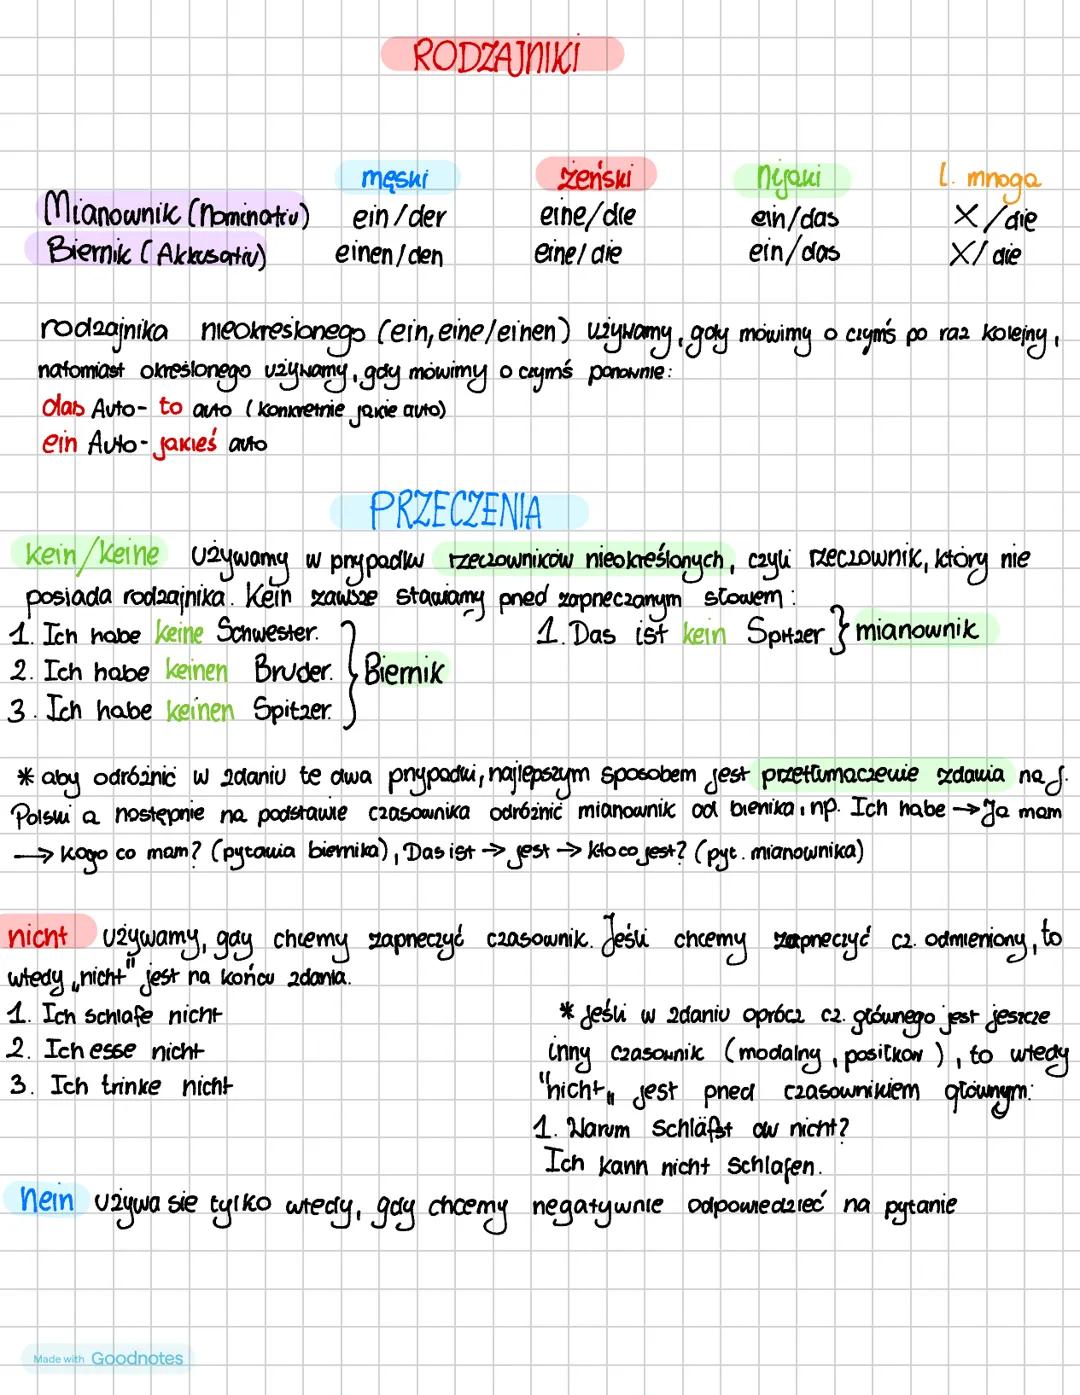 RODZAJNIKI
męski żeński nijaki l. mnoga
Mianownik (Nominativ) ein/der eine/die ein/das X/die
Biernik (Akkusativ) einen/den eine/die ein/das X/die
rodzajnika nieokreślonego (ein, eine/einen) używamy, gdy mówimy o czymś po raz kolejny,
natomiast określonego używamy, gdy mówimy o czymś ponownie:
das Auto - to auto (konkretnie jakie auto)
ein Auto - jakieś auto
PRZECZENIA
kein/keine używamy w przypadku rzeczowników nieokreślonych, czyli rzeczownik, który nie
posiada rodzajnika. Kein zawsze stawiamy przed zaprzeczanym słowem:
1. Ich habe keine Schwester.
2. Ich habe keinen Bruder. } Biernik
3. Ich habe keinen Spitzer.
1. Das ist kein Spitzer } mianownik
* aby odróżnić w zdaniu te dwa przypadki, najlepszym sposobem jest przetłumaczenie zdania na j.
Polski a następnie na podstawie czasownika odróżnić mianownik od biernika, np. Ich habe → Ja mam
→ kogo co mam? (pytania biernika), Das ist → jest → kto co jest? (pyt. mianownika)
nicht używamy, gdy chcemy zaprzeczyć czasownik. Jeśli chcemy zaprzeczyć cz. odmieniony, to
wtedy „nicht" jest na końcu zdania.
1. Ich schlafe nicht
2. Ich esse nicht
3. Ich trinke nicht
* jeśli w zdaniu oprócz cz. głównego jest jeszcze
inny czasownik (modalny, posiłkow), to wtedy
"nicht„ jest przed czasownikiem głównym:
1. Warum schläfst du nicht?
Ich kann nicht schlafen.
Nein używa sie tylko wtedy, gdy chcemy negatywnie odpowiedzieć na pytanie
Made with Goodnotes